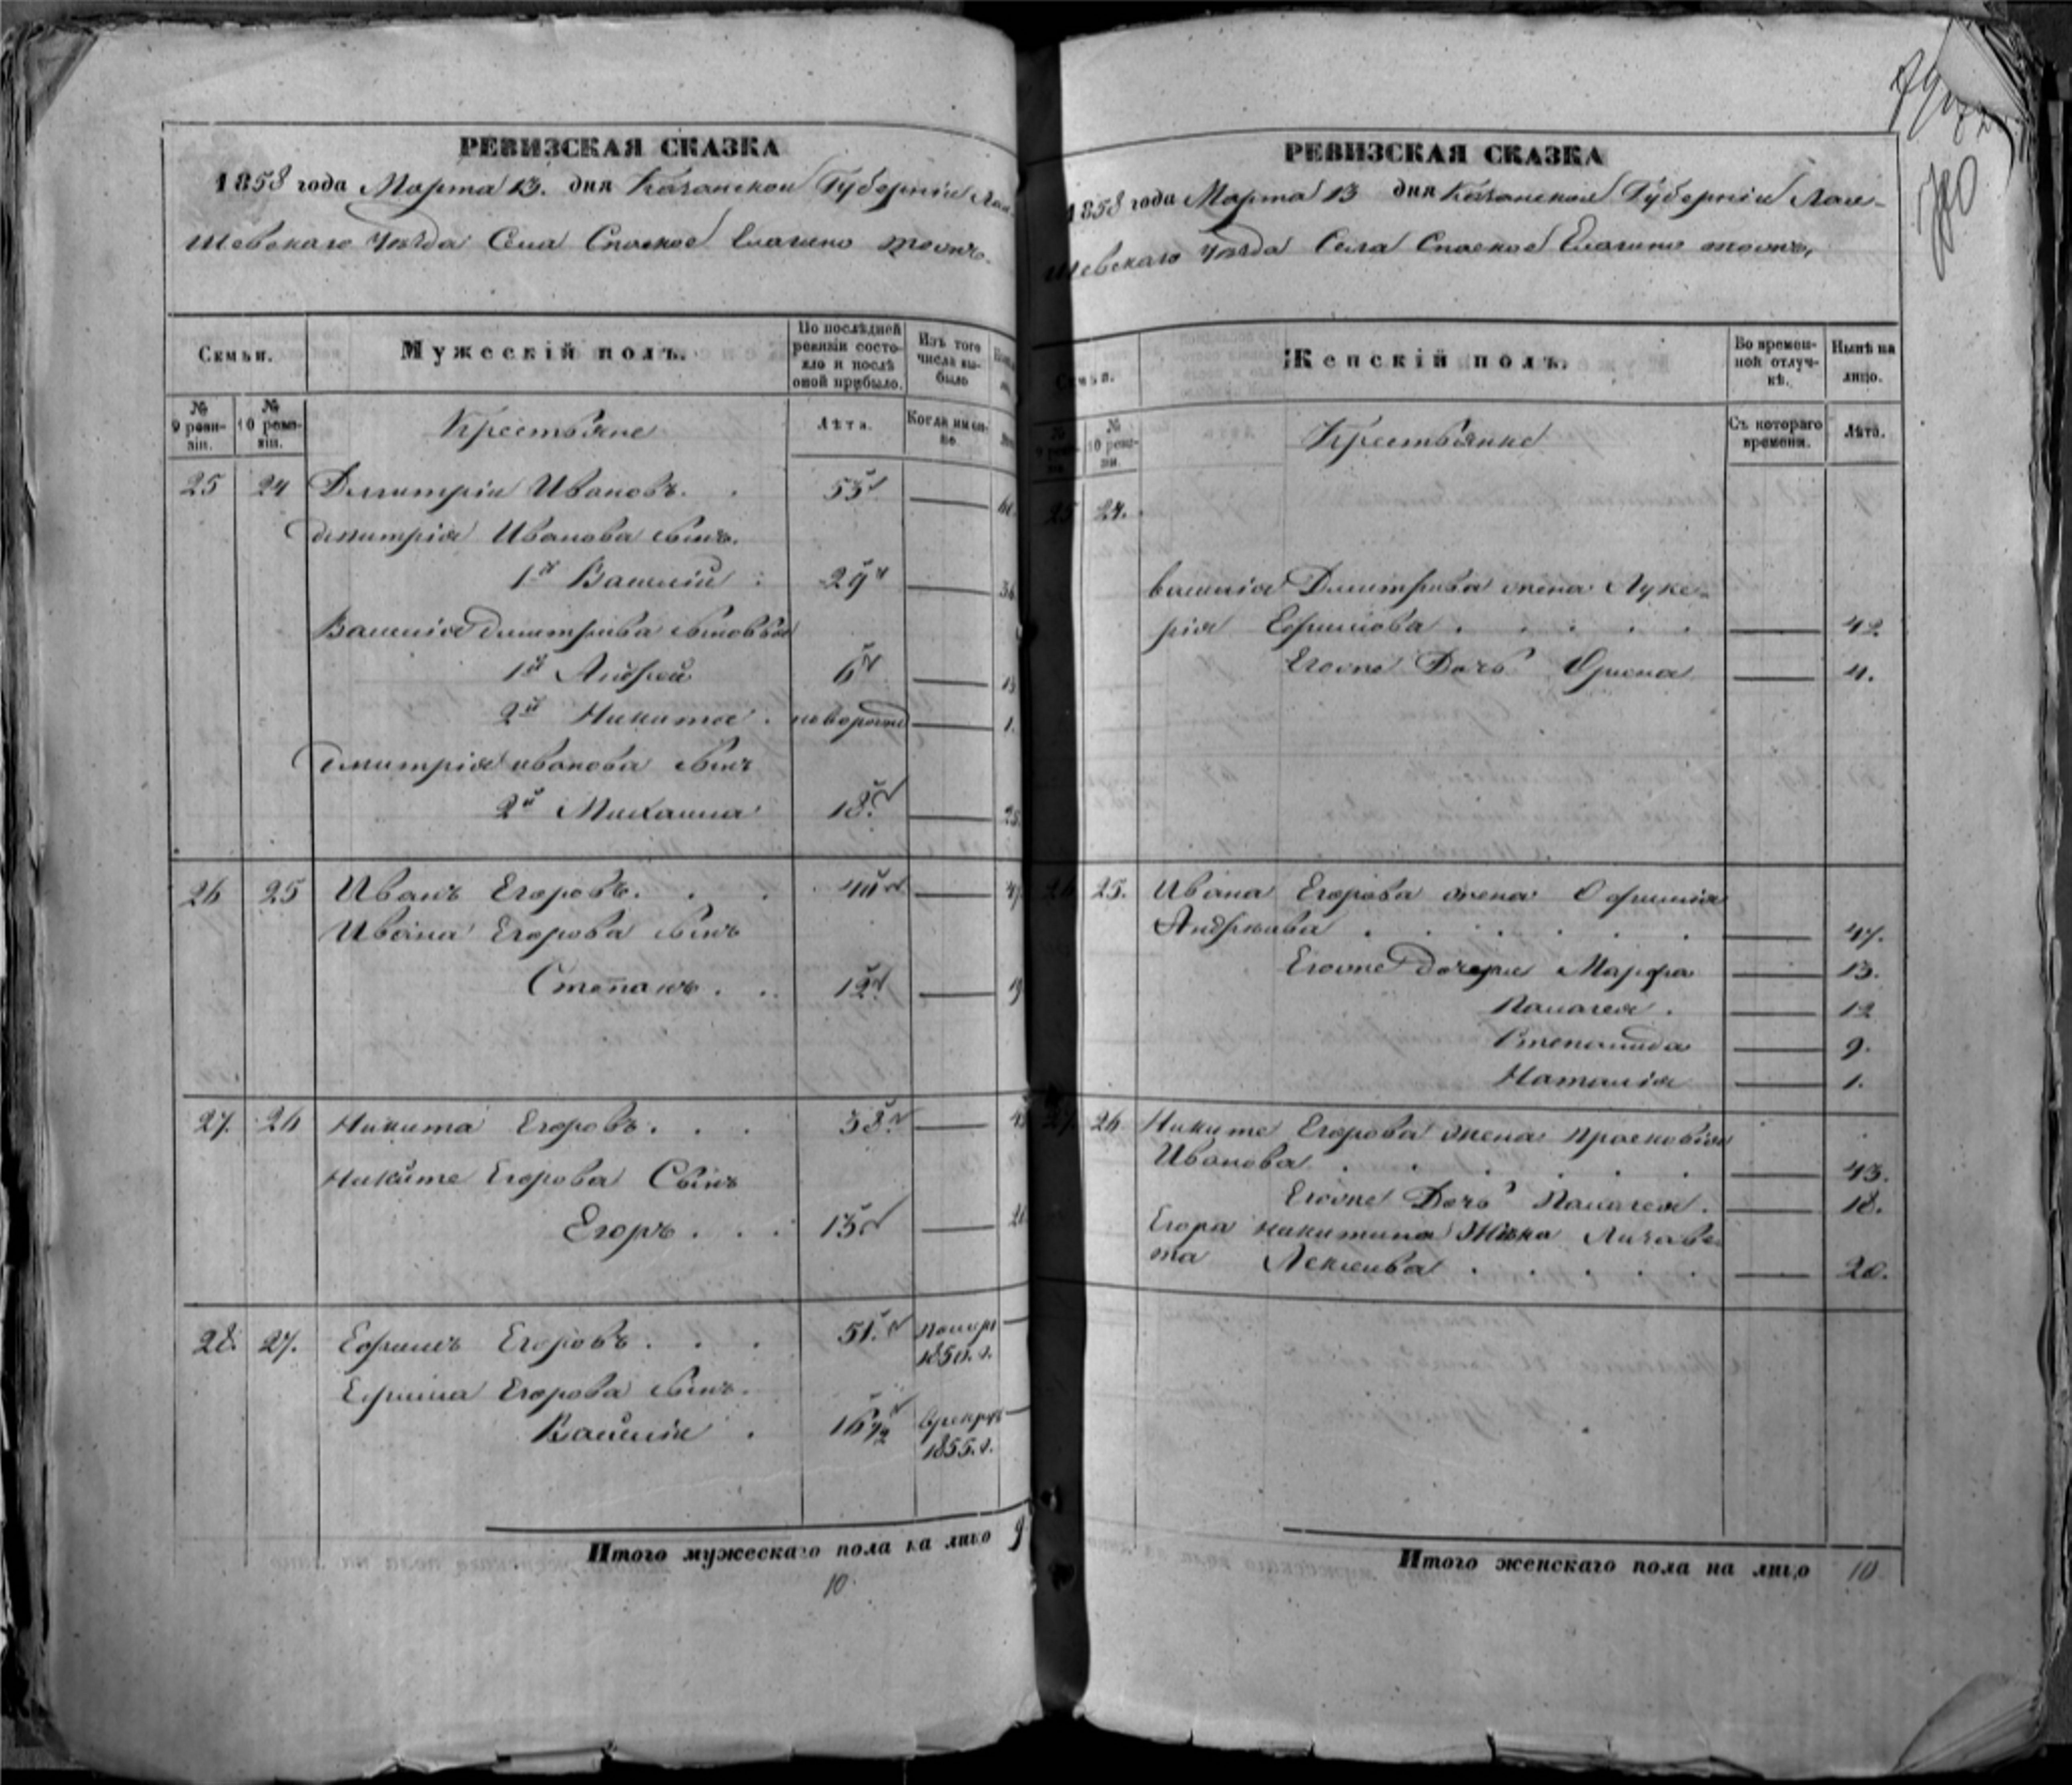 РЕВИЗСКАЯ СКАЗКА
1858 года Марта 13. дня Казанской Губерніи Лаи-
шевскаго Уѣзда Села Спаское Елагино тожъ.
Семьи.
Мужескій полъ.
По послѣдней ревизіи состояло и послѣ оной прибыло.
Изъ того числа выбыло
№ 9 ревизіи.
№ 10 ревизіи.
Крестьяне
Лѣта.
Когда именно
25 24 Дмитрій Ивановъ. . 53
Дмитрія Иванова сынъ.
1й Василій 29
Василія Дмитріева сыновья
1й Андрей 6
2й Никита . новорожд 1.
Дмитрія Иванова сынъ
2й Михаила 18.
26 25 Иванъ Егоровъ. . . 40 47
Ивана Егорова сынъ
Степанъ . . 12. 19
27. 26 Никита Егоровъ. . . 38.
Никите Егорова Сынъ
Егоръ . . . 13
28. 27. Ефимъ Егоровъ . . . 51. помер
1850. г.
Ефима Егорова сынъ.
Василій . 16 1/2 в рекру
1855. г.
Итого мужескаго пола на лицо 9
10.
РЕВИЗСКАЯ СКАЗКА
1858 года Марта 13 дня Казанской Губерніи Лаи-
шевскаго Уѣзда Села Спаское Елагино тожъ,
Семьи.
Женскій полъ.
Во временной отлучкѣ.
Нынѣ на лицо.
№ 9 ревизіи.
№ 10 ревизіи.
Крестьянке
Съ котораго времени.
Лѣта.
25 24.
Василія Дмитріева жена Луке-
рія Ефимова . . . . . 42
Еговые Дочь Орина 4.
26 25. Ивана Егорова жена Офимія
Андрѣева . . . . . . 47.
Еговые Дочери Марфа 13.
Палагея . 12
Степанида 9.
Наталія 1.
27. 26 Никите Егорова жена Прасковія
Иванова . . . . . 43.
Еговые Дочь Палагея . 18.
Егора Никитина Жена Лизаве-
та Лексеива . . . . . 20.
Итого женскаго пола на лицо 10